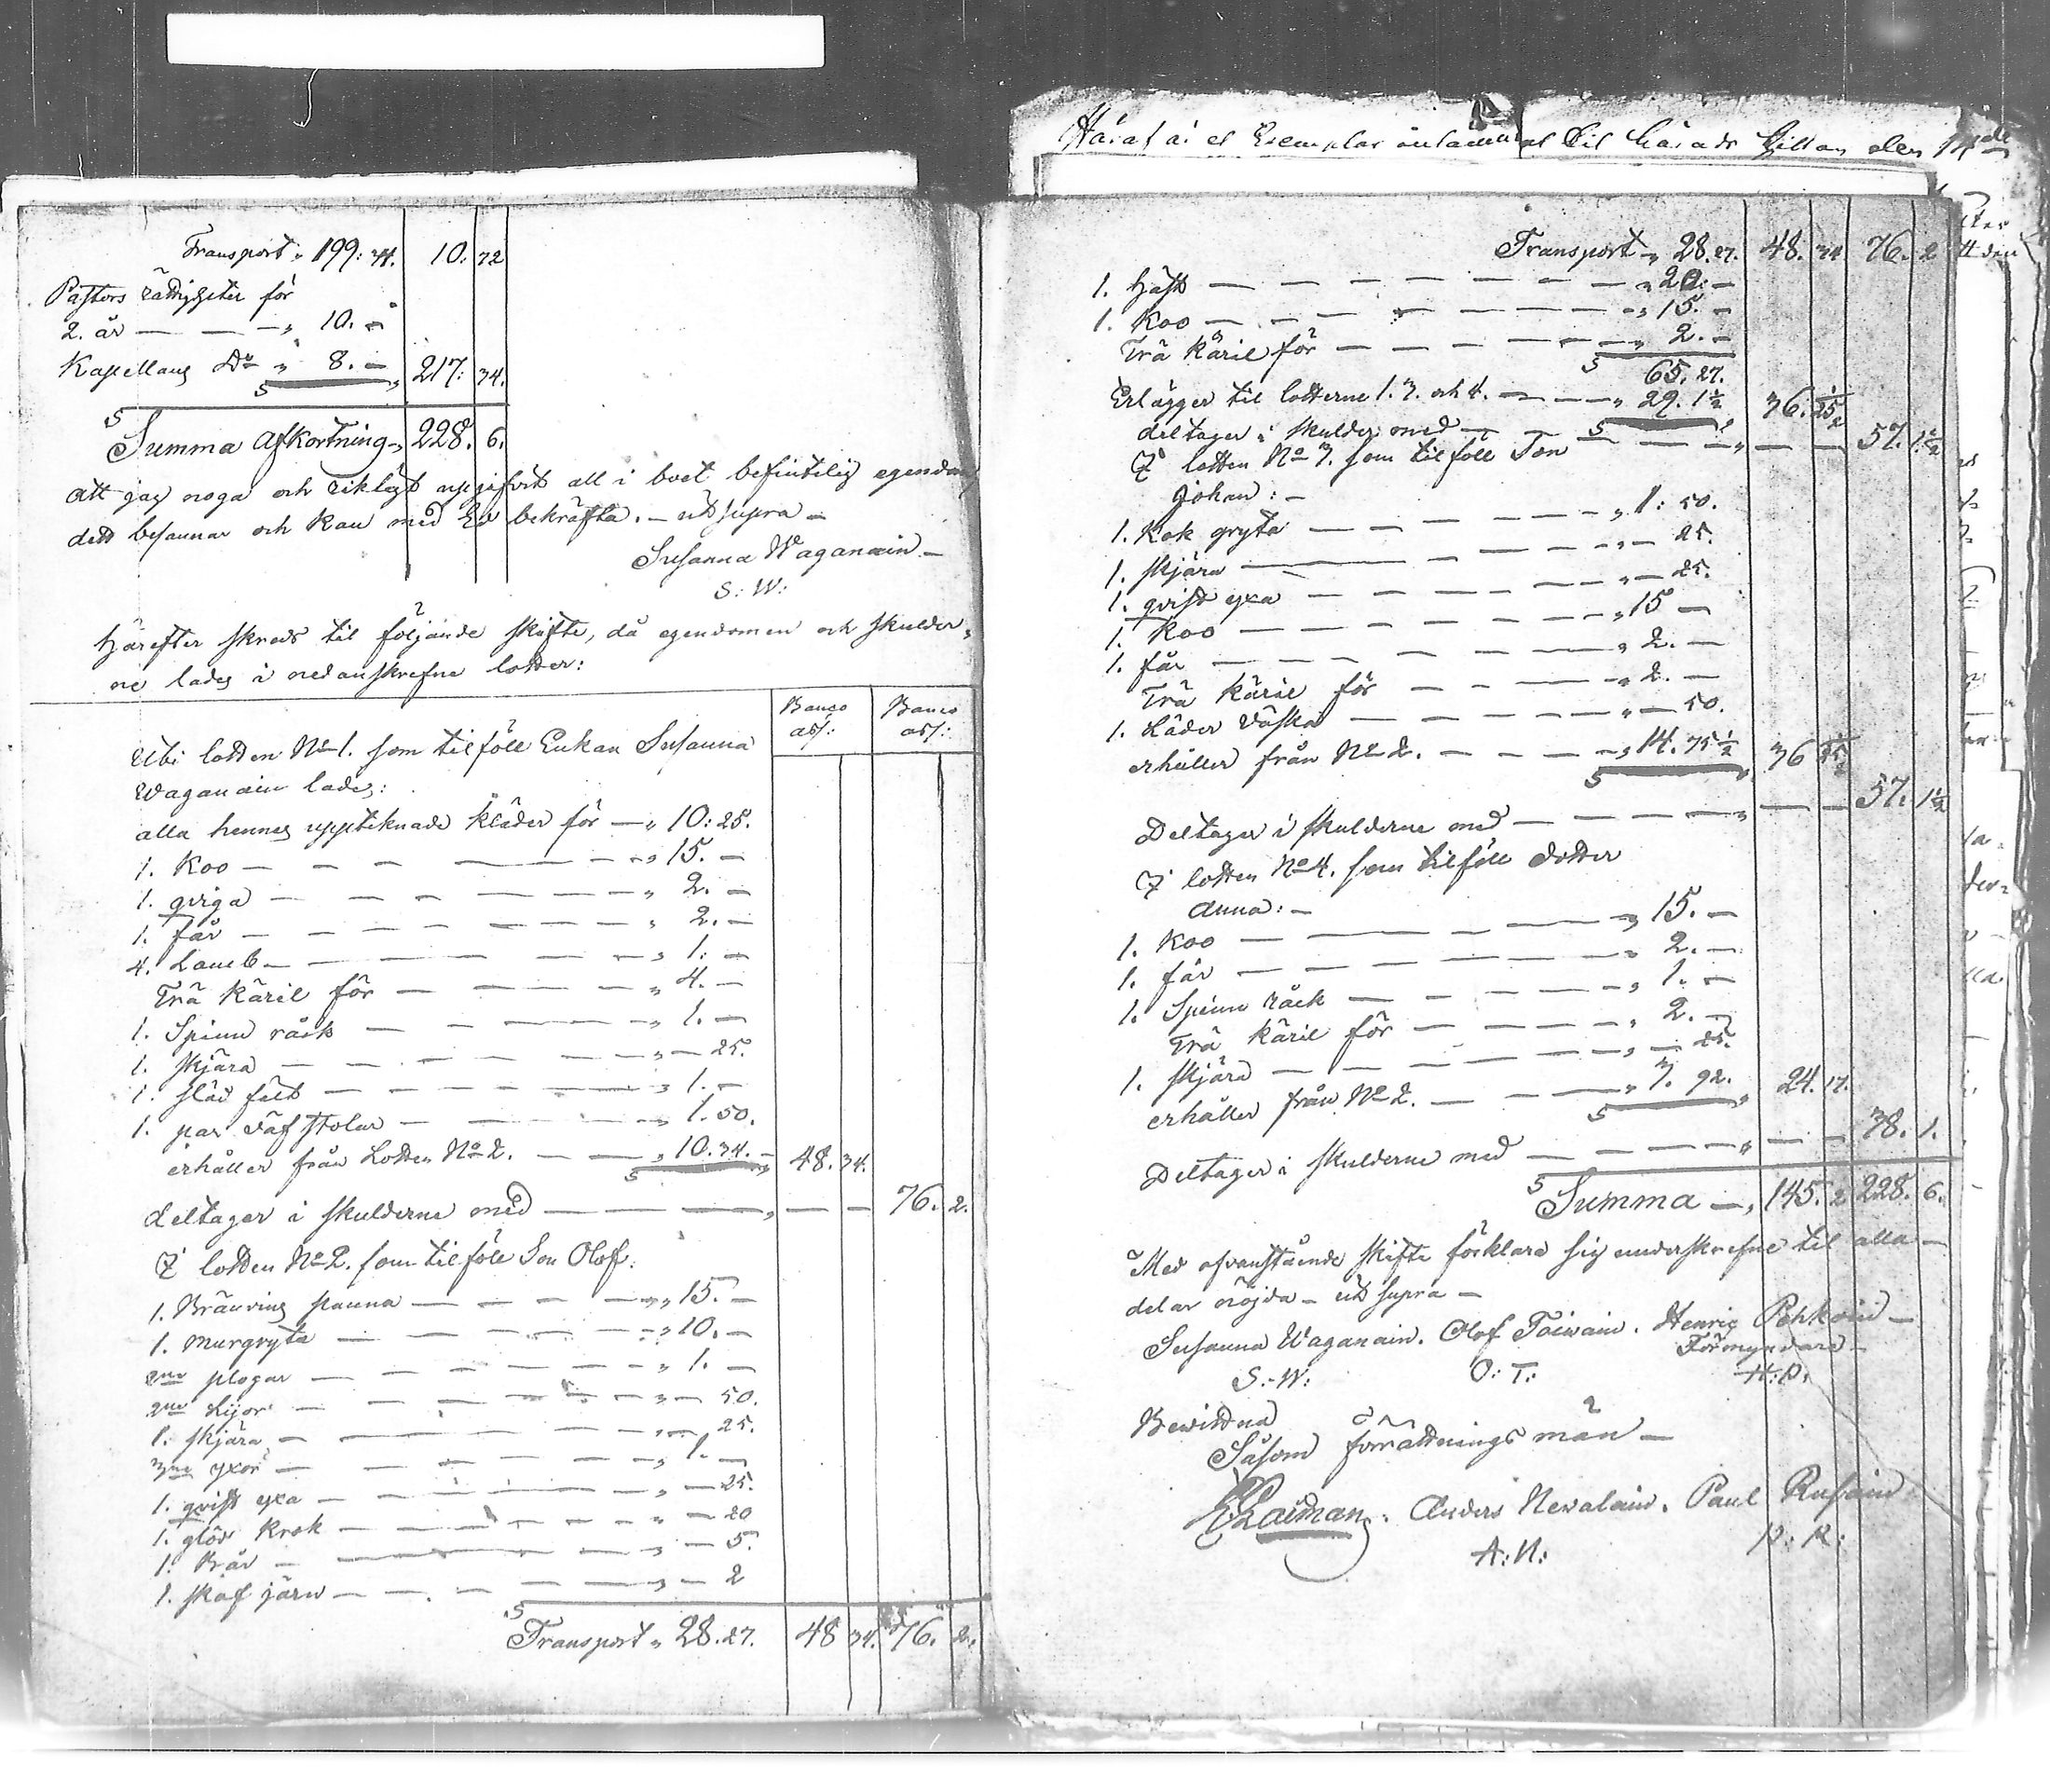 Transport „ 199: 34. 10. 72
Pastors rättigheter för
2. år — — „ 10. —
Kapellans Do „ 8. — „ 217: 34.
Summa Afkortning „ 228. 6.
Att jag noga och riktigt uppgifvit all i boet befintelig egendom
dett besannar och kan med Ed bekräfta. — ut supra —
Susanna Waganain —
S: W:
Härefter skreds til följande skifte, då egendomen och skulder„
ne lades i nedanskrefne lotter:
Banco ass: Banco ass:
Uti lotten No 1. som tilföll Enkan Susanna
Waganain lades:
alla hennes uppteknade kläder för — „ 10: 25.
1. Koo — — — „ 15. —
1. qviga — — — „ 2. —
1. får — — — „ 2. —
4. Lamb — — — „ 1: —
Trä käril för — — — „ 4. —
1. Spinn råck — — — „ 1. —
1. skjära — — — „ — 25.
1. släd fält — — — „ 1. —
1. par väfstolar — — — „ 1. 50.
erhåller från Lotten No 2. — — „ 10. 34. — 48. 34.
deltager i skulderne med — — — „ — — 76. 2.
I lotten No 2. som tilföll Son Olof:
1. Bränvins panna — — — „ 15. —
1. murgryta — — — „ 10. —
2ne plogar — — — „ 1. —
2ne Lijor — — — „ — 50.
1. skjära — — — „ — 25.
3ne yxor — — — „ 1. —
1. qvist yxa — — — „ — 25.
1. glöd krok — — — „ — 20
1. Bår — — — „ — 5.
1. skaf järn — — — „ — 2
Transport „ 28. 27. 48 34. 76. 2.
Häraf är et Exemplar inlämnat til Härads Rätten den 14de
Transport „ 28. 27. 48. 34 76. 2
1. häst — — — „ 20. —
1. Koo — — — „ 15. —
Trä käril för — — — „ 2. —
65. 27.
Erlägger til lotterne 1. 3. och 4. — — „ 29. 1½ 36. 25½
deltager i skulder med — — — „ — — 57. 1½
I lotten No 3. som tilföll Son
Johan: —
1. Kok gryta — — — „ 1: 50.
1. skjära — — — „ — 25.
1. qvist yxa — — — „ — 25.
1. Koo — — — „ 15 —
1. får — — — „ 2. —
Trä käril för — — — „ 2. —
1. Läder väska — — — „ — 50.
erhåller från No 2. — — — „ 14. 75½ 36 25½
Deltager i skulderne med — — — „ — — 57. 1½
I lotten No 4. som tilföll Dotter
Anna: —
1. Koo — — — „ 15. —
1. får — — — „ 2. —
1. Spinn råck — — — „ 1. —
Trä käril för — — — „ 2. —
1. skjära — — — „ — 25.
erhåller från No 2. — — — „ 3. 92. 24. 17.
Deltager i skulderne med — — — „ — — 38. 1.
Summa — „ 145. 2 228. 6.
Med ofvanstående skifte förklara sig underskrefne til alla —
delar nöjda — ut supra —
Susanna Waganain. Olof Toiwain. Henric Pehkoin —
Förmyndare —
S: W: O: T: H: P:
Bewittna
Såsom förrättnings män —
Laitman. Anders Newalain. Paul Rusain
A: N: P: R: